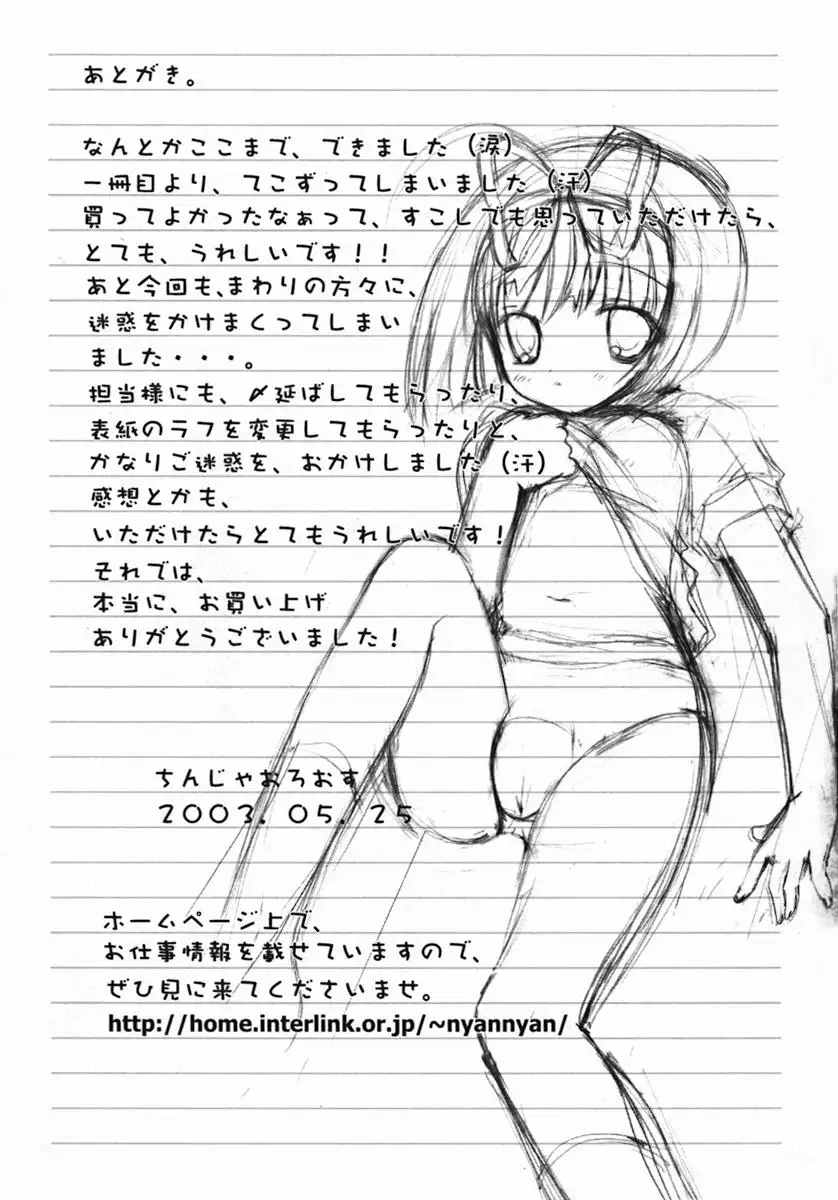 あとがき。
なんとかここまで、できました（涙）
一冊目より、てこずってしまいました（汗）
買ってよかったなぁって、すこしでも思っていただけたら、
とても、うれしいです！！
あと今回も、まわりの方々に、
迷惑をかけまくってしまい
ました・・・。
担当様にも、〆延ばしてもらったり、
表紙のラフを変更してもらったりと、
かなりご迷惑を、おかけしました（汗）
感想とかも、
いただけたらとてもうれしいです！
それでは、
本当に、お買い上げ
ありがとうございました！
ちんじゃおろおす
２００３．０５．２５
ホームページ上で、
お仕事情報を載せていますので、
ぜひ見に来てくださいませ。
http://home.interlink.or.jp/~nyannyan/